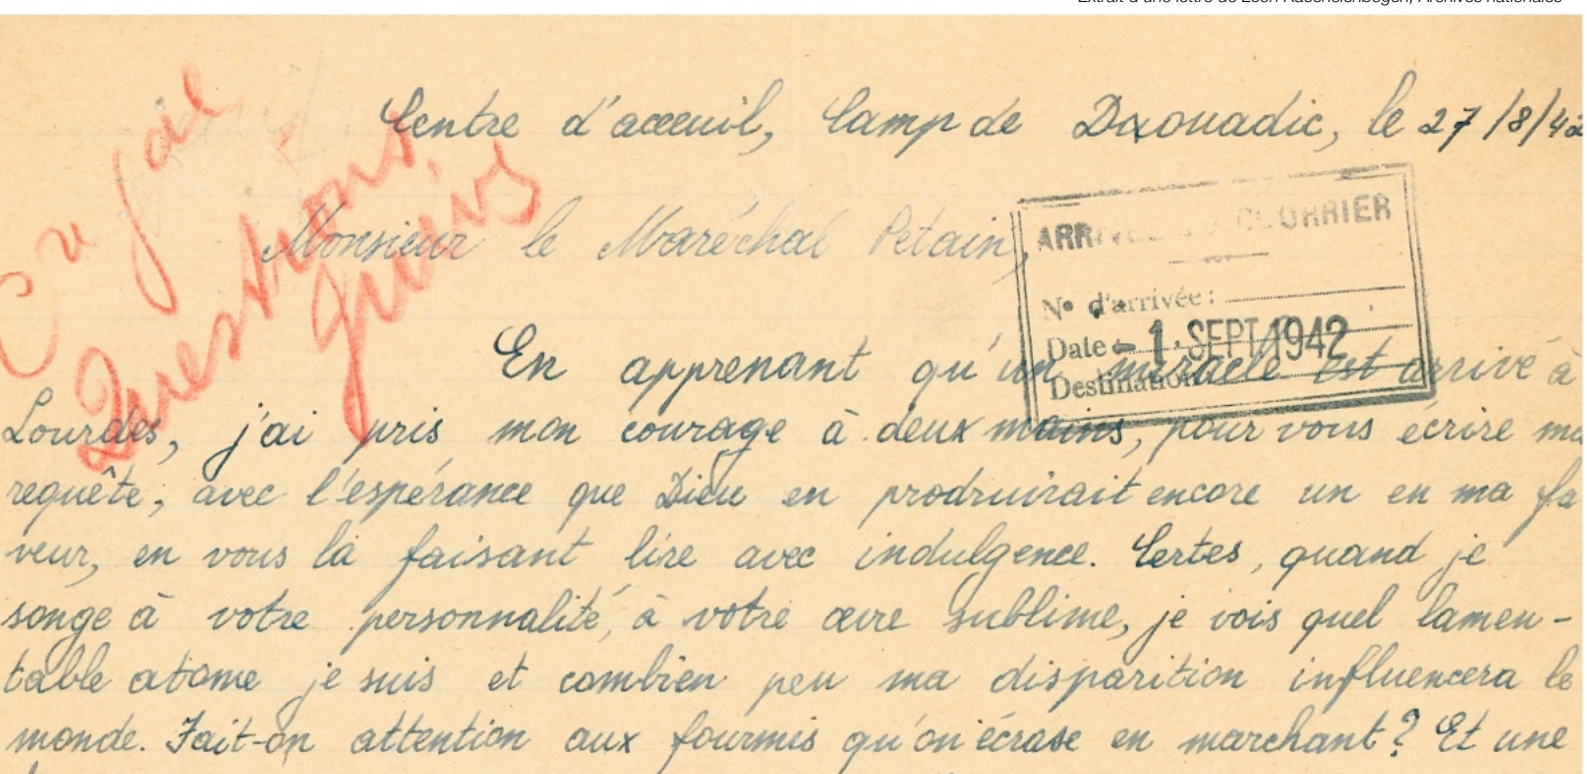 Extrait d'une lettre de Léon Kacenelenbogen, Archives nationales
Cer gal
Questions
juives
Centre d'acceuil, Camp de Drouadic, le 27/8/42
Monsieur le Maréchal Petain,
ARRIVÉE DU COURRIER
N° d'arrivée :
Date - 1. SEPT 1942
Destination
En apprenant qu'un miracle est arrivé à
Lourdes, j'ai pris mon courage à deux mains, pour vous écrire ma
requête, avec l'espérance que Dieu en produirait encore un en ma fa
veur, en vous la faisant lire avec indulgence. Certes, quand je
songe à votre personnalité, à votre œvre sublime, je vois quel lamen-
table atome je suis et combien peu ma disparition influencera le
monde. Fait-on attention aux fourmis qu'on écrase en marchant? Et une